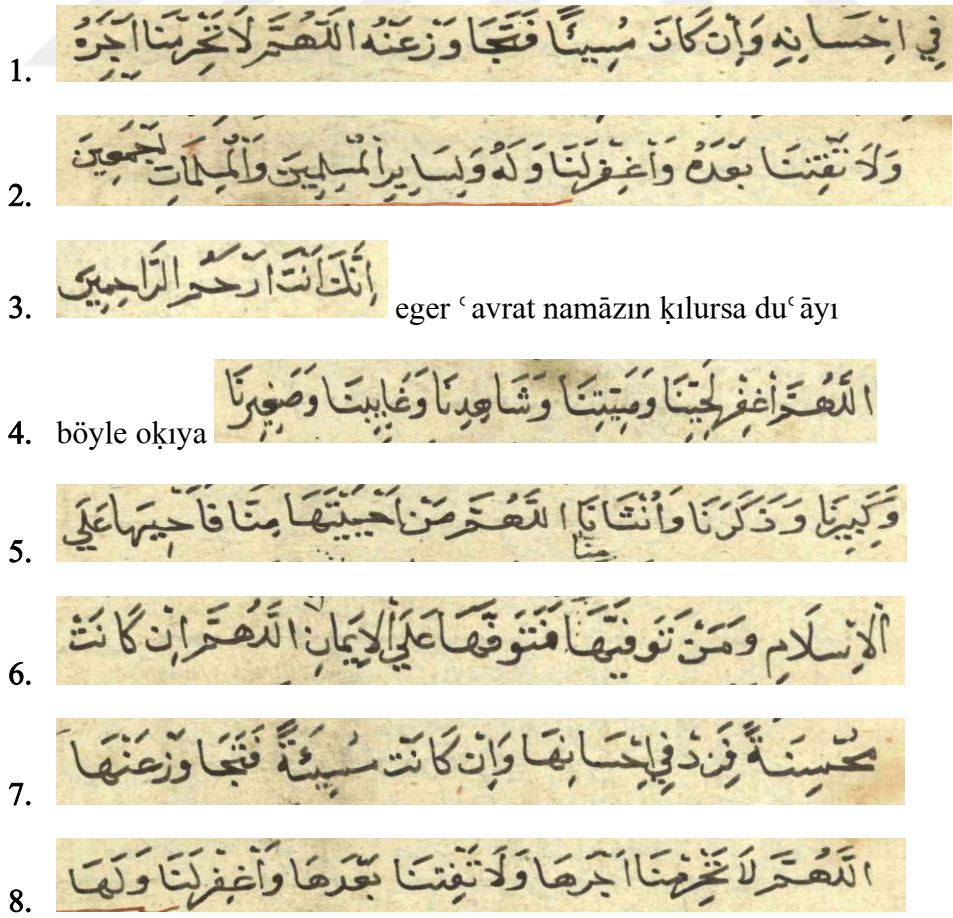 1. فِي اِحْسَانِهِ وَاِنْ كَانَ مُسِيئًا فَتَجَاوَزْ عَنْهُ اَللّٰهُمَّ لَا تَحْرِمْنَا اَجْرَهُ
2. وَلَا تَفْتِنَّا بَعْدَهُ وَاغْفِرْ لَنَا وَلَهُ وَلِسَايِرِ الْمُسْلِمِينَ وَالْمُسْلِمَاتِ اَجْمَعِينَ
3. اِنَّكَ اَنْتَ اَرْحَمُ الرَّاحِمِينَ eger ʿavrat namāzın ḳılursa duʿāyı
4. böyle oḳıya اَللّٰهُمَّ اغْفِرْ لِحَيِّنَا وَمَيِّتِنَا وَشَاهِدِنَا وَغَايِبِنَا وَصَغِيرِنَا
5. وَكَبِيرِنَا وَذَكَرِنَا وَاُنْثَانَا اَللّٰهُمَّ مَنْ اَحْيَيْتَهَا مِنَّا فَاَحْيِهَا عَلَي
6. الْاِسْلَامِ وَمَنْ تَوَفَّيْتَهَا مِنَّا فَتَوَفَّهَا عَلَي الْاِيمَانِ اَللّٰهُمَّ اِنْ كَانَتْ
7. مُحْسِنَةً فَزِدْ فِي اِحْسَانِهَا وَاِنْ كَانَتْ مُسِيئَةً فَتَجَاوَزْ عَنْهَا
8. اَللّٰهُمَّ لَا تَحْرِمْنَا اَجْرَهَا وَلَا تَفْتِنَّا بَعْدَهَا وَاغْفِرْ لَنَا وَلَهَا